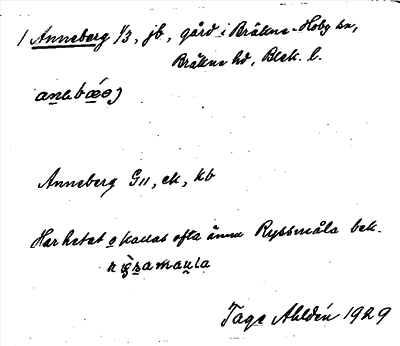 1 Anneberg 1/3, jb, gård i Bräkne-Hoby sn,
Bräkne hd, Blek. l.
Anneberg G11, ek, kb
Har hetat o kallas ofta ännu Ryssmåla bek.
Tage Ahldén 1929